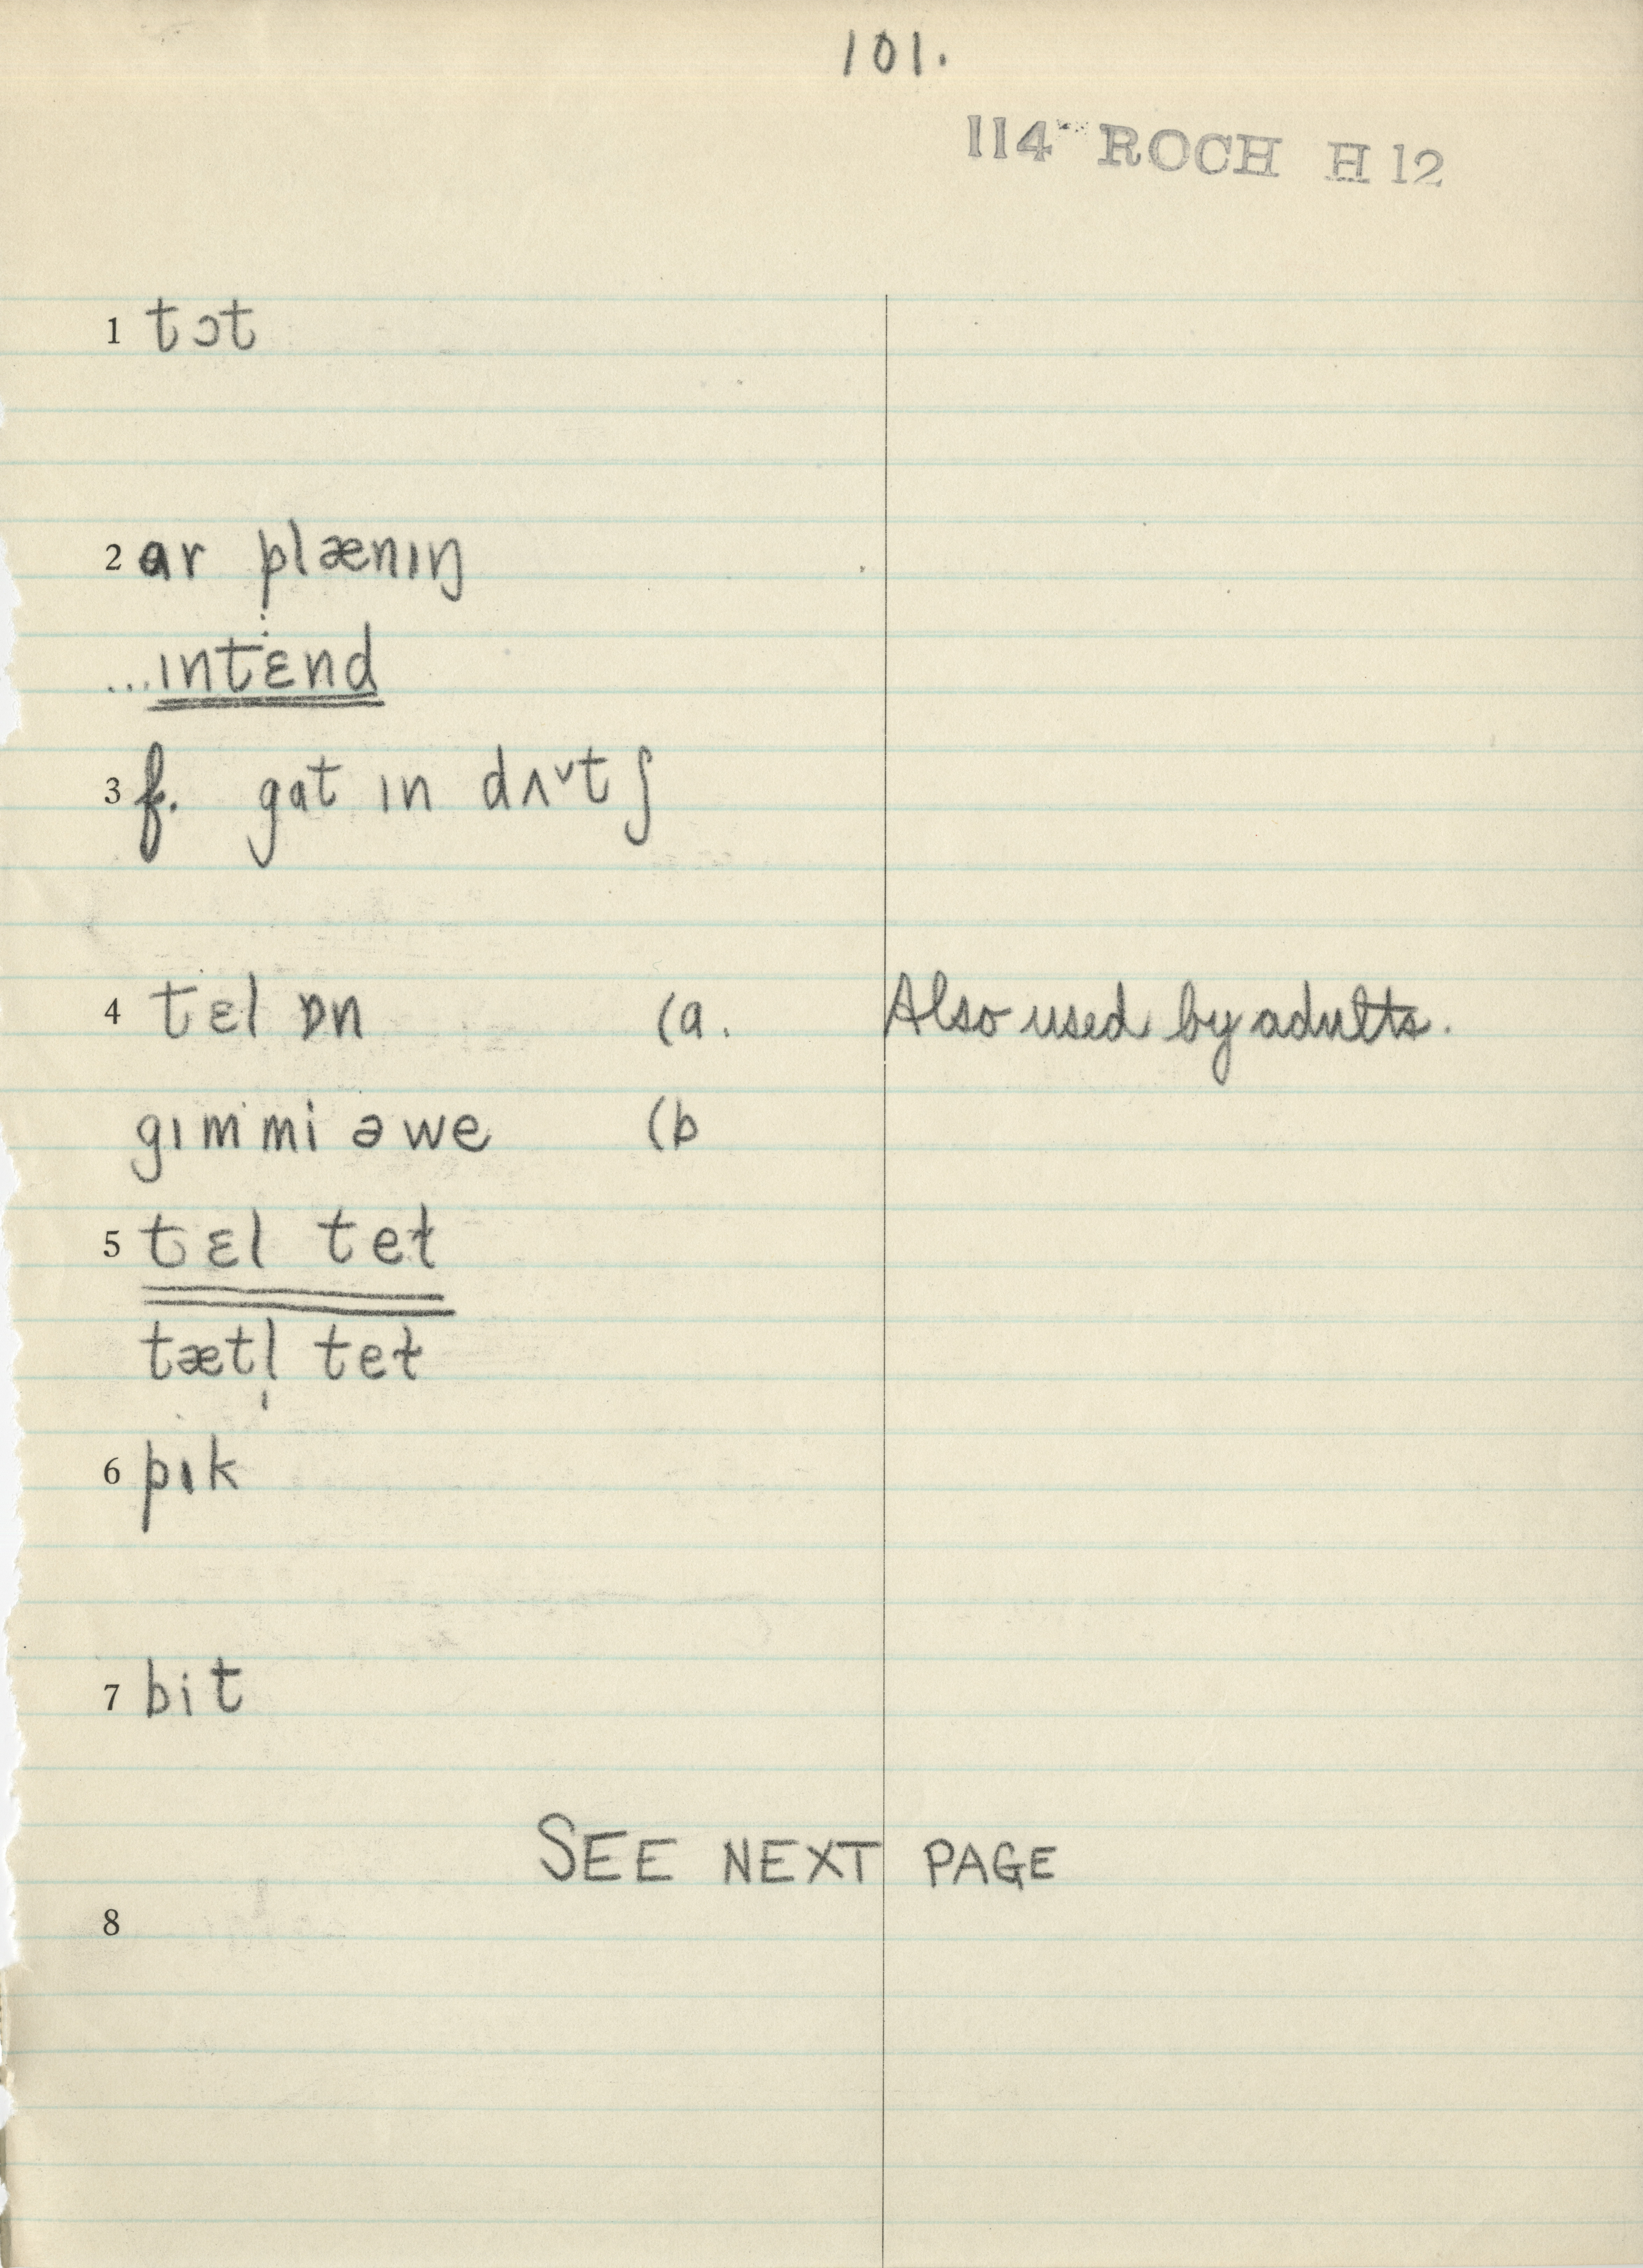 101.
114 ROCH H 12
1 tɔt
2 ar plænɪŋ
...ɪntɛnd
3 f. gat ɪn dʌ˅tʃ
4 tɛl ɒn (a. Also used by adults.
gɪmmi əwe (b
5 tɛl teɫ
tætl̩ teɫ
6 pɪk
7 bit
SEE NEXT PAGE
8